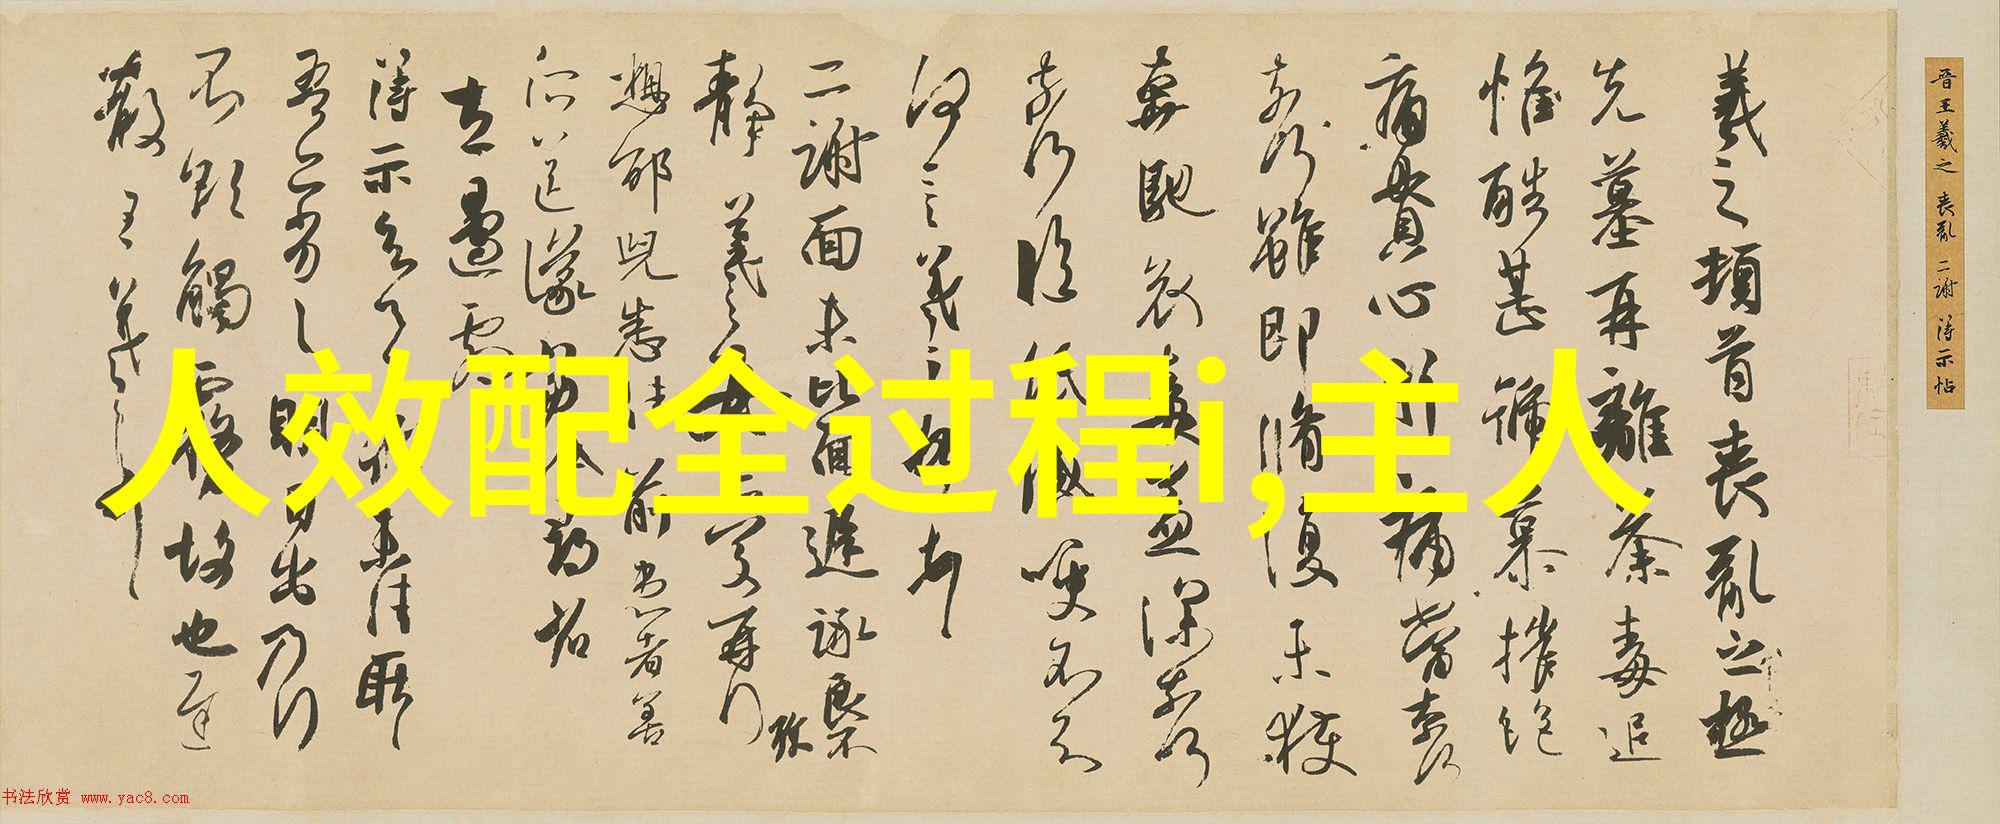 羲之頓首喪亂之極
先墓再離荼毒追
惟酷甚號慕摧絕
痛貫心肝痛當奈何
奈何雖即脩復未獲
奔馳哀毒益深奈何
奈何臨紙感哽不知
何言羲之頓首
二謝面未比面遲詠良不
靜羲之女愛再拜
想邵兒悉佳前患者善
得示知足下猶未佳耿
吾亦劣劣明日出乃行
不欲觸霧故也遲
散王羲之頓首
晋王羲之 喪亂 二謝 得示帖
人效配全过程i,主人
书法欣赏 www.yac8.com